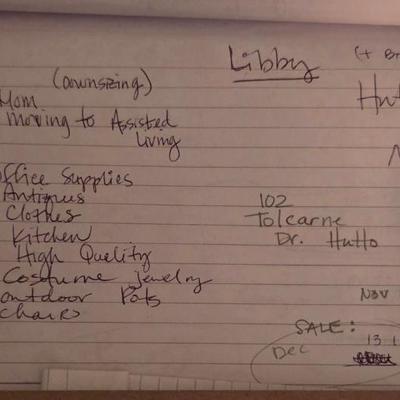 Libby
(Downsizing)
Mom
moving to Assisted
Living
Office Supplies
Antiques
Clothes
Kitchen
High Quality
Costume jewelry
outdoor Pots
chairs
102
Tolcarne
Dr. Hutto
Nov
SALE:
Dec 13